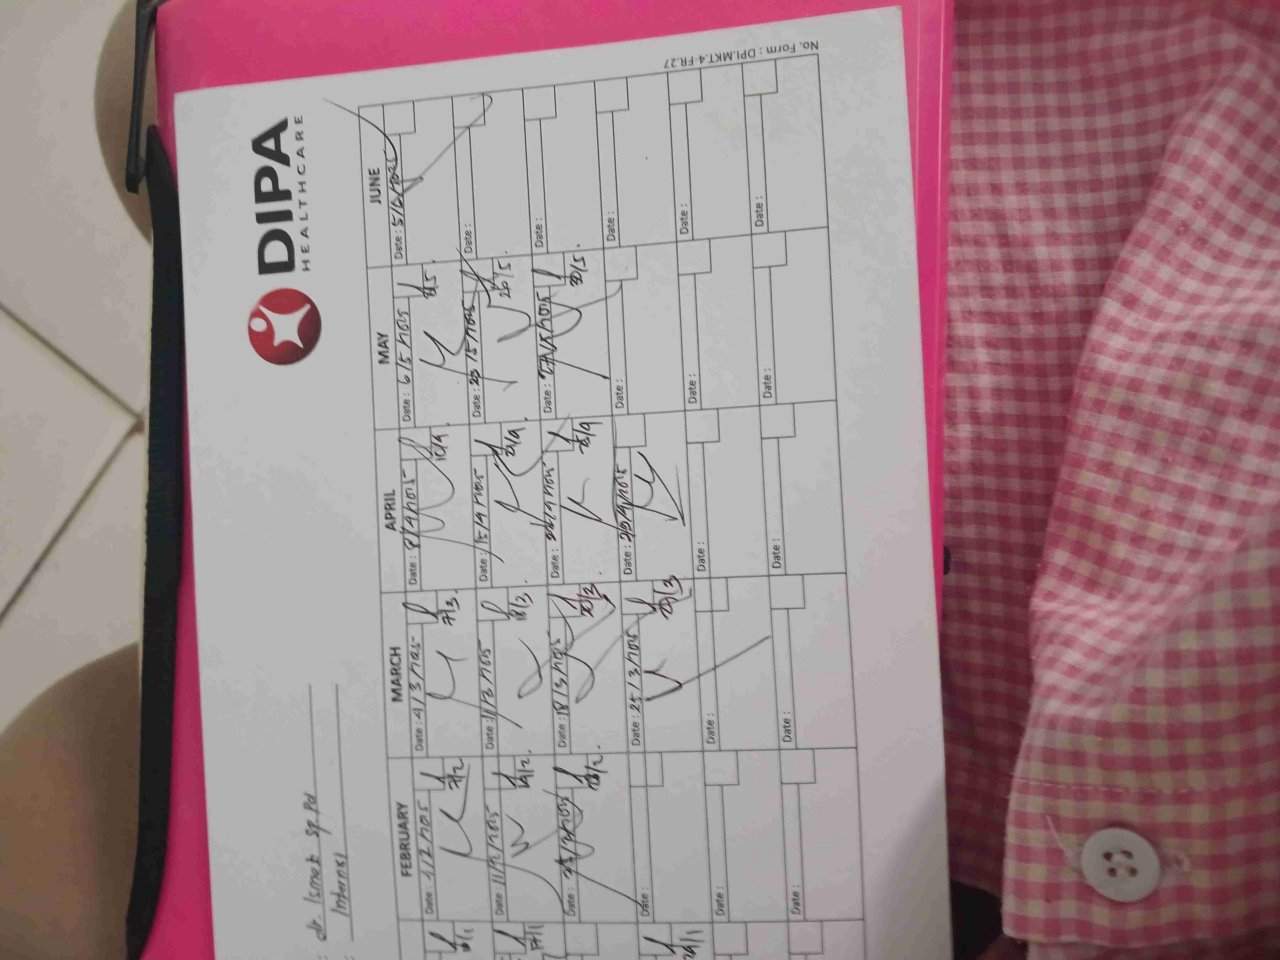 DIPA
HEALTHCARE
: dr. Ismet Sp.Pd
: Internis
FEBRUARY MARCH APRIL MAY JUNE
Date : 4/2/2025 Date : 4/3/2025 Date : 8/4/2025 Date : 6/5/2025 Date : 5/6/2025
7/2 7/3 10/4 8/5
Date : 11/2/2025 Date : 11/3/2025 Date : 15/4/2025 Date : 20/5/2025 Date :
17/1 14/2 18/3
Date : Date : 18/3/2025 Date : 22/4/2025 Date : 27/5/2025 Date :
20/3 25/4 30/5
Date : Date : 25/3/2025 Date : Date : Date :
Date : Date : Date : Date : Date :
Date : Date : Date : Date : Date :
No. Form : DPI.MKT.4-FR.27